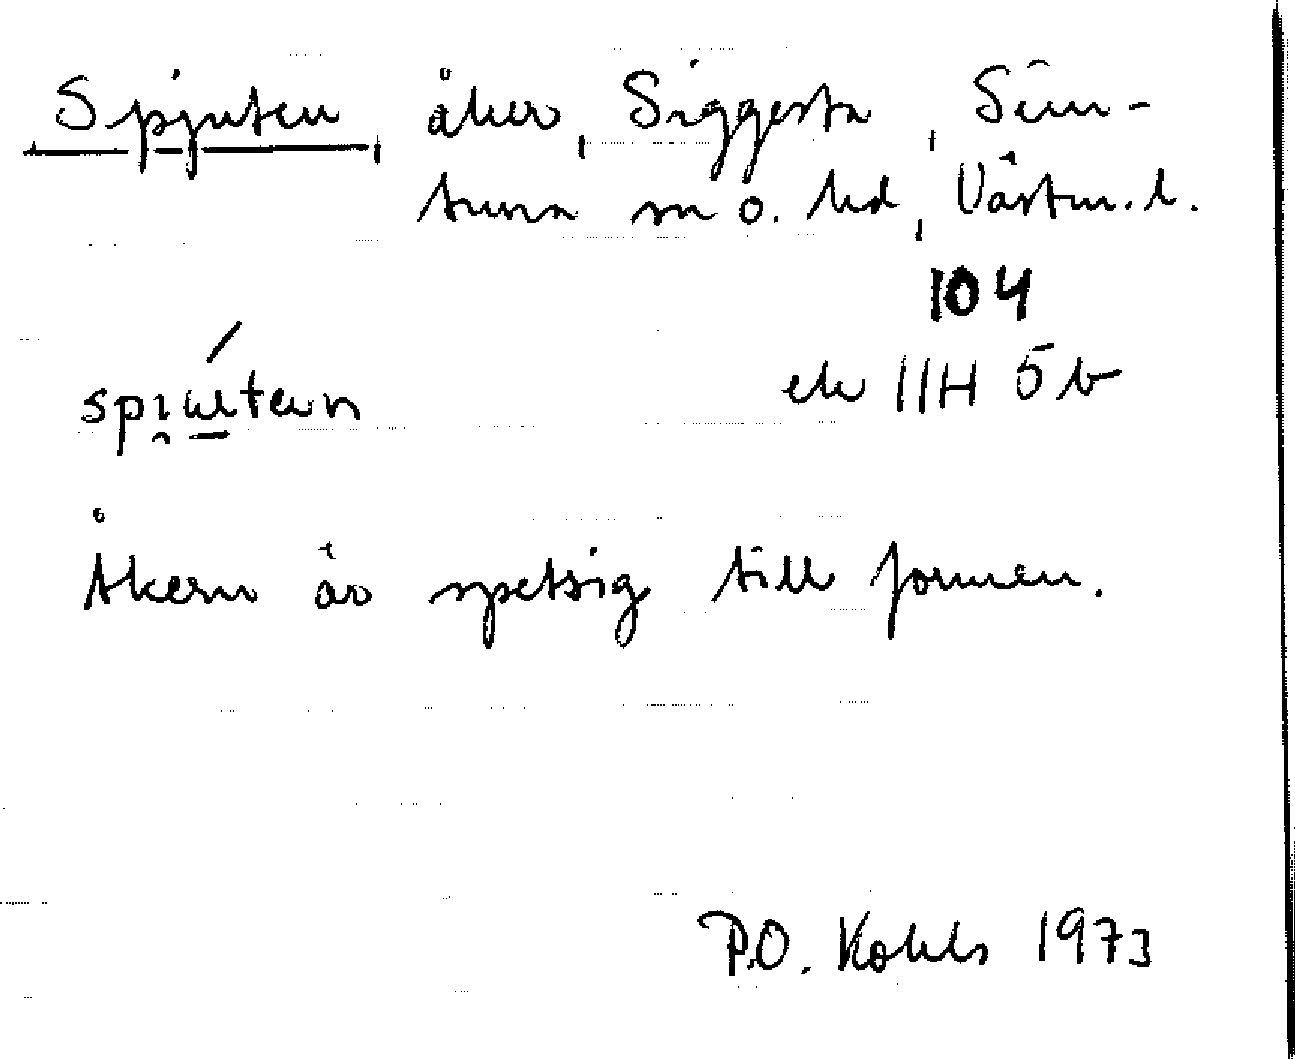 Spjuten, åker, Siggesta, Sim-
tuna sn o. hd, Västm. l.
104
ek 11H 5b
Åkern är spetsig till formen.
P.O. Kohls 1973